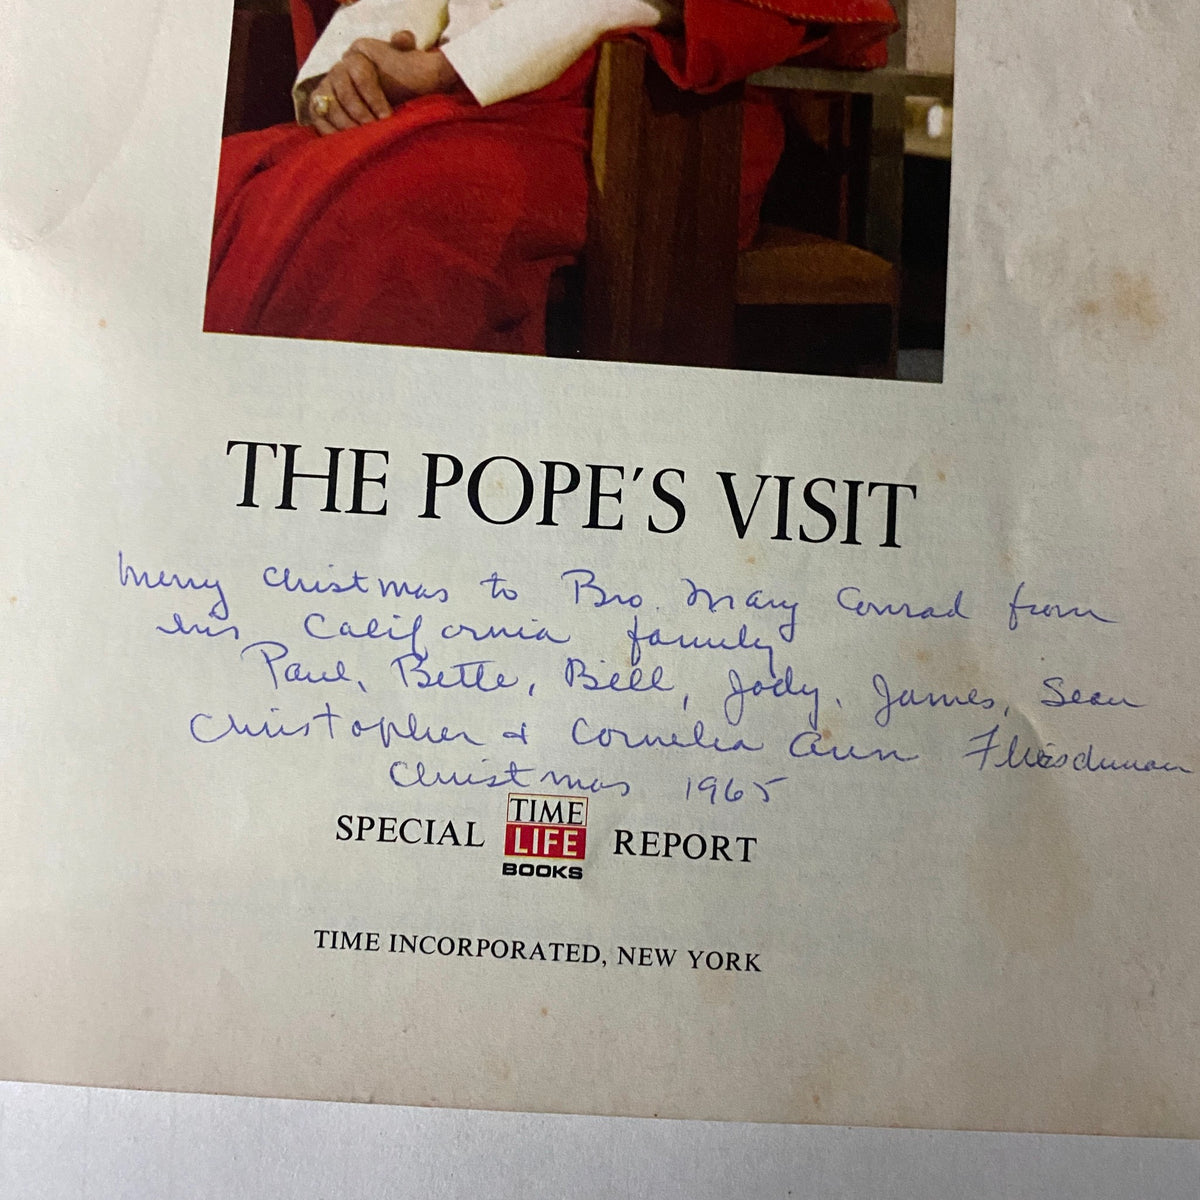 THE POPE'S VISIT
Merry Christmas to Bro. Mary Conrad from
his California family
Paul, Bette, Bill, Jody, James, Sean
Christopher & Cornelia Ann Fleischman
Christmas 1965
SPECIAL TIME LIFE BOOKS REPORT
TIME INCORPORATED, NEW YORK